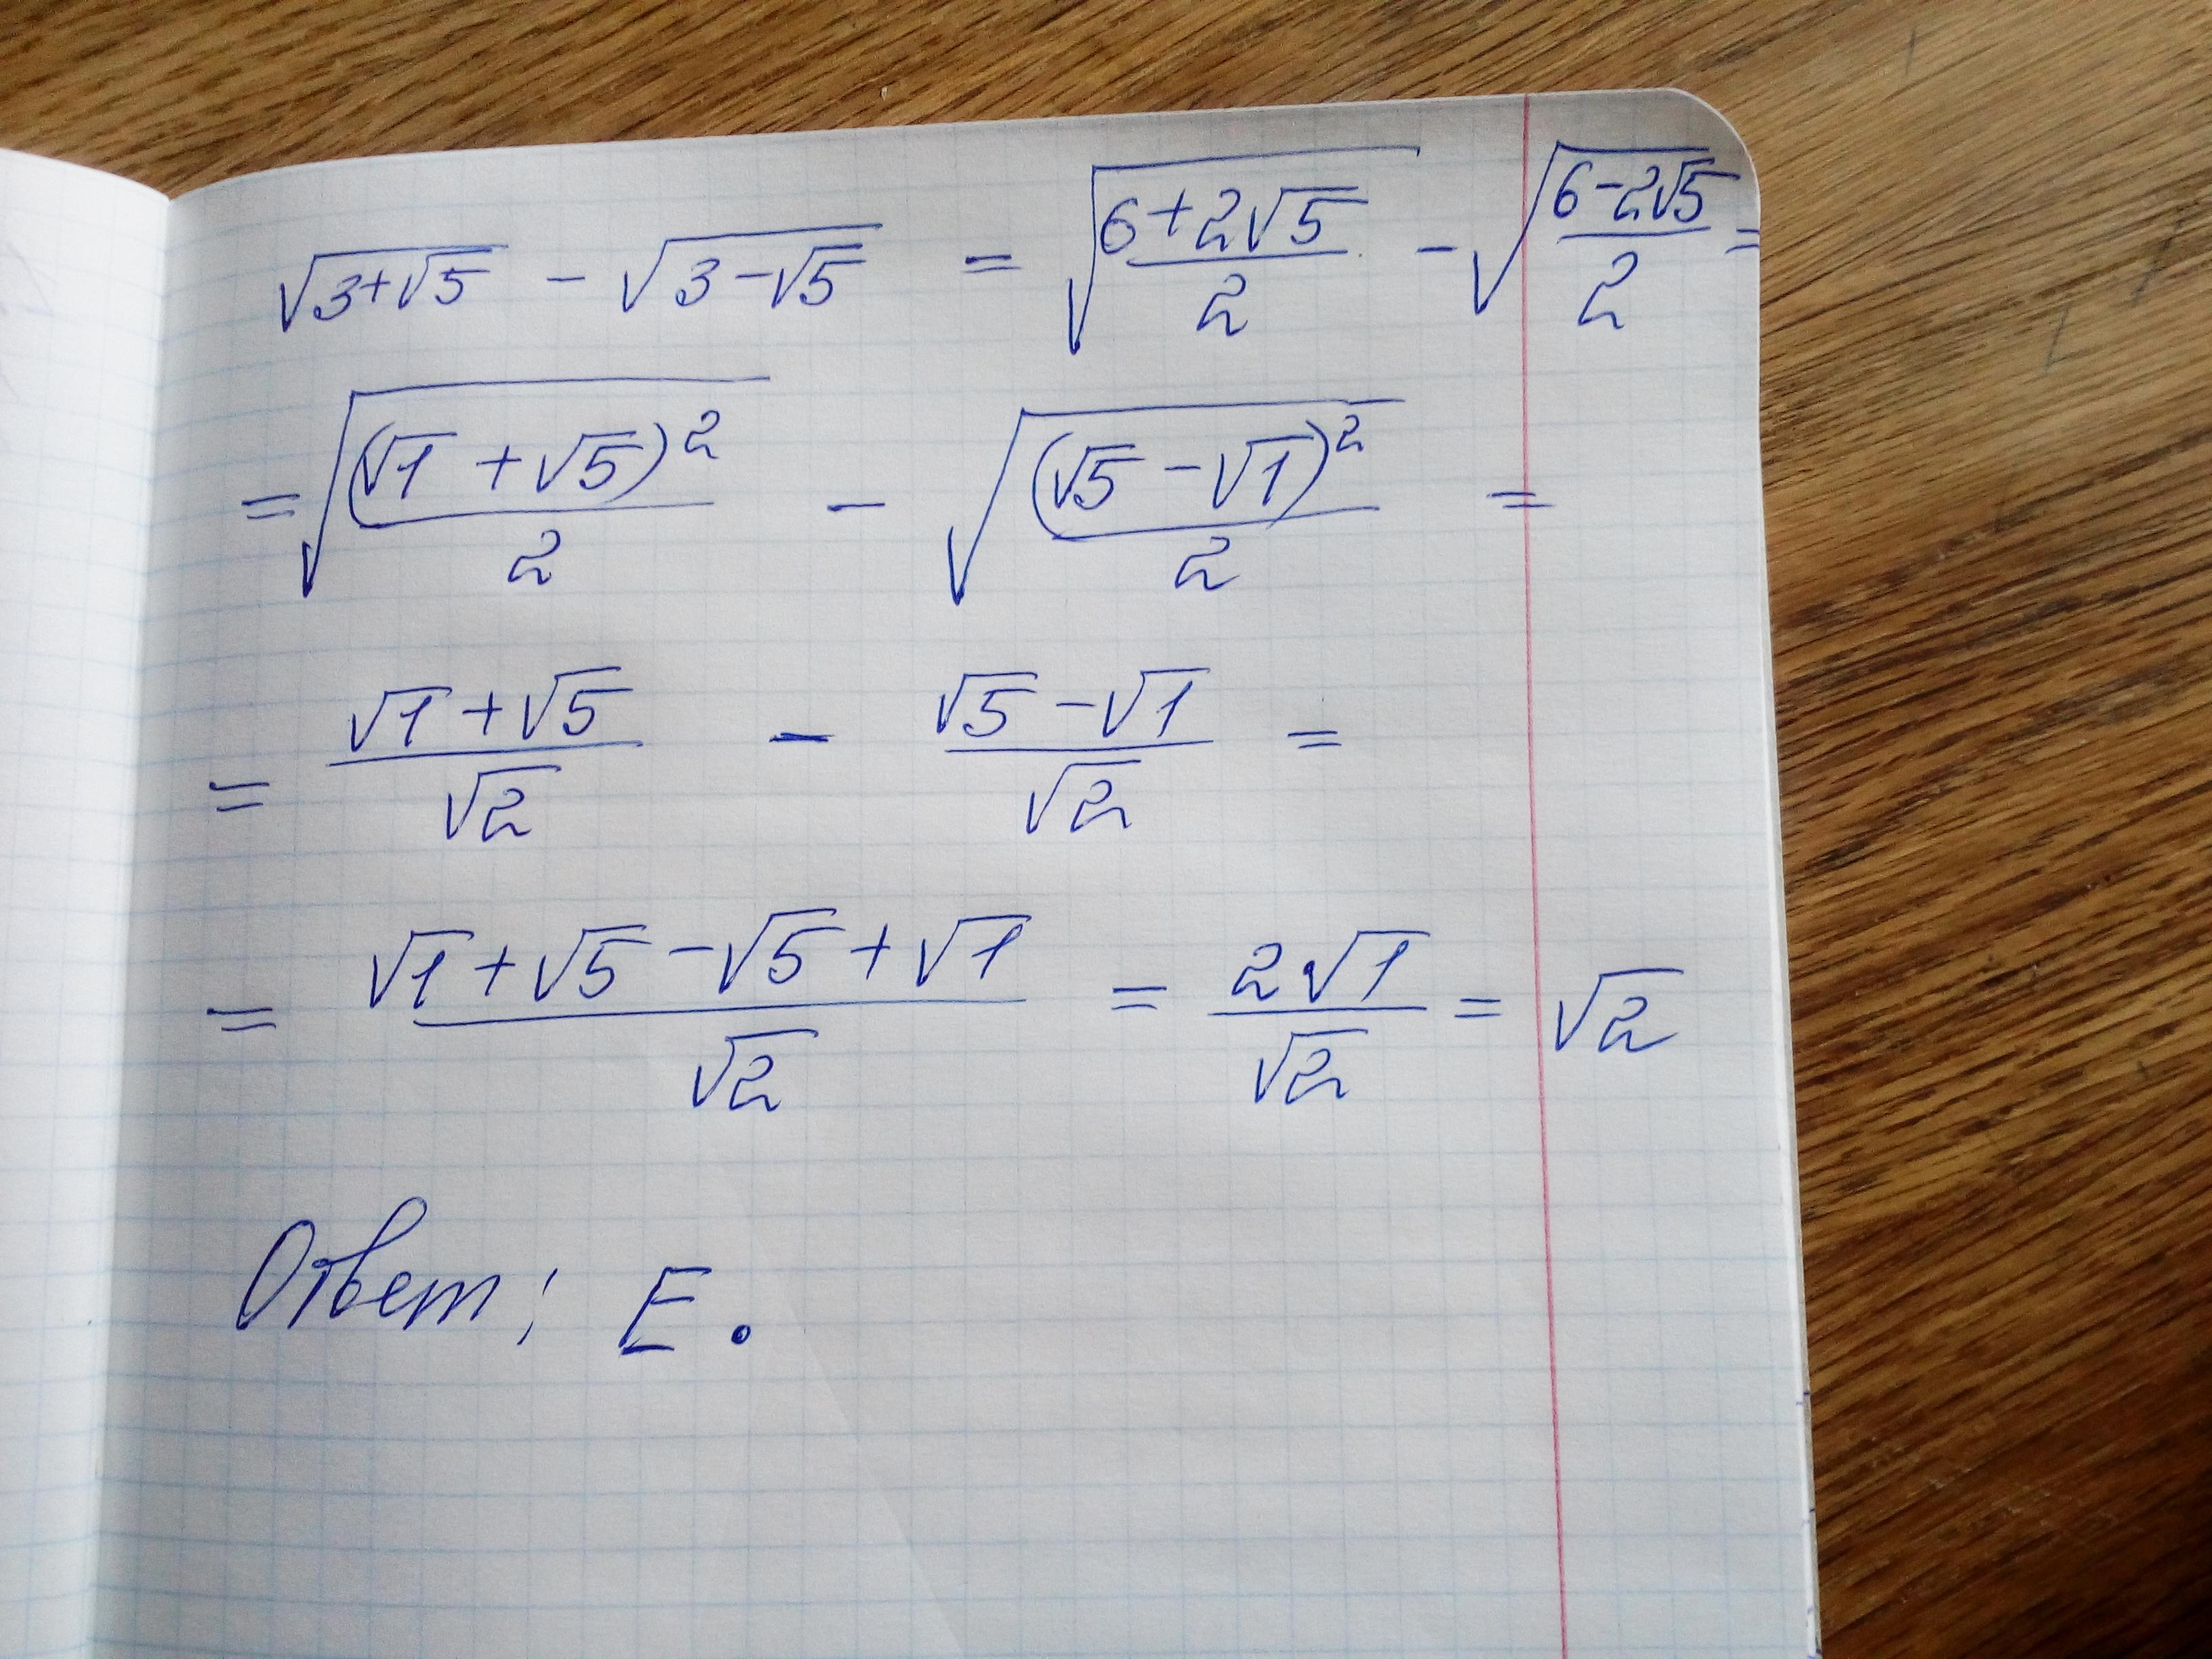 √(3+√5) − √(3−√5) = √((6+2√5)/2) − √((6−2√5)/2) =
= √((√1+√5)²/2) − √((√5−√1)²/2) =
= (√1+√5)/√2 − (√5−√1)/√2 =
= (√1+√5−√5+√1)/√2 = 2√1/√2 = √2
Ответ: E.